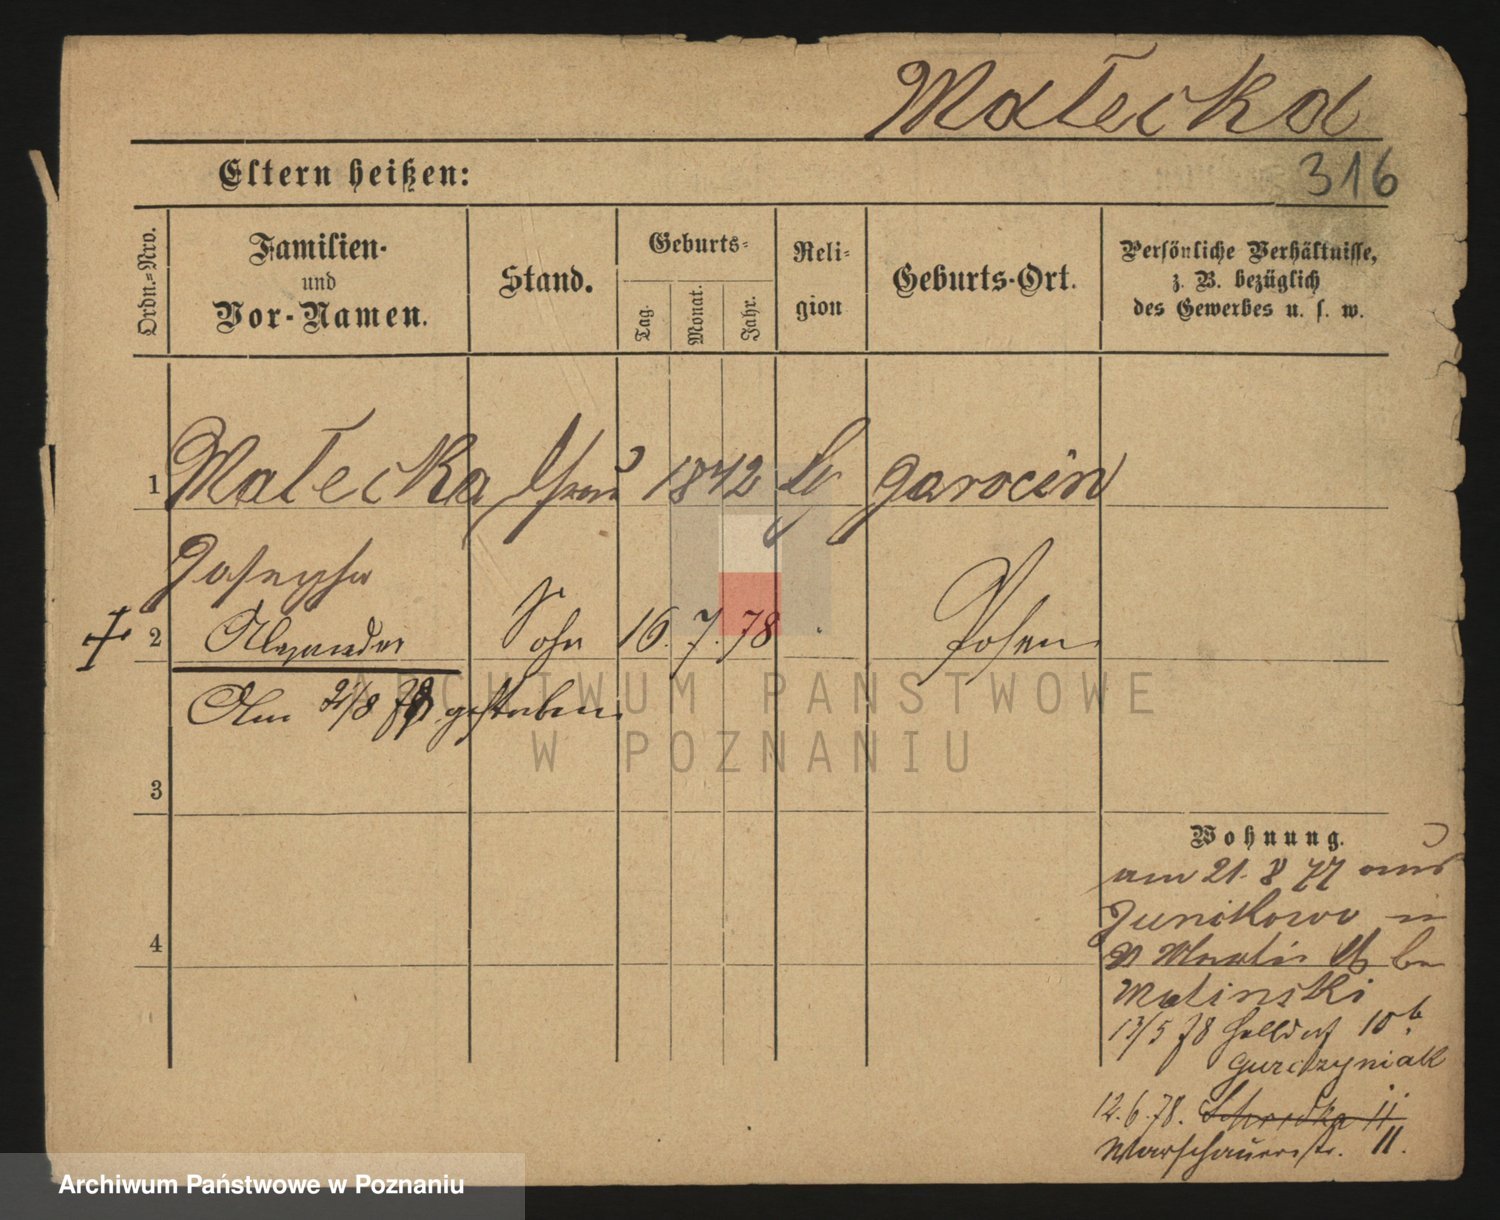 Małecka
316
Eltern heißen:
Ordn.-Nro.
Familien-
und
Vor-Namen.
Stand.
Geburts-
Tag.
Monat.
Jahr.
Reli-
gion
Geburts-Ort.
Persönliche Verhältnisse,
z. B. bezüglich
des Gewerbes u. s. w.
1 Małecka Frau 1842 Garocin
Josepha
2 Alexander Sohn 16. 7. 78 Posen
Am 2/8 78 gestorben.
3
4
Wohnung.
am 21. 8 77 aus
Junikowo
St Martin be
Malinski
13/5 78 Halldorf 10b
Gurczyniak
12.6.78. Schrodka 11
Warschauerstr. 11.
ARCHIWUM PAŃSTWOWE
W POZNANIU
Archiwum Państwowe w Poznaniu